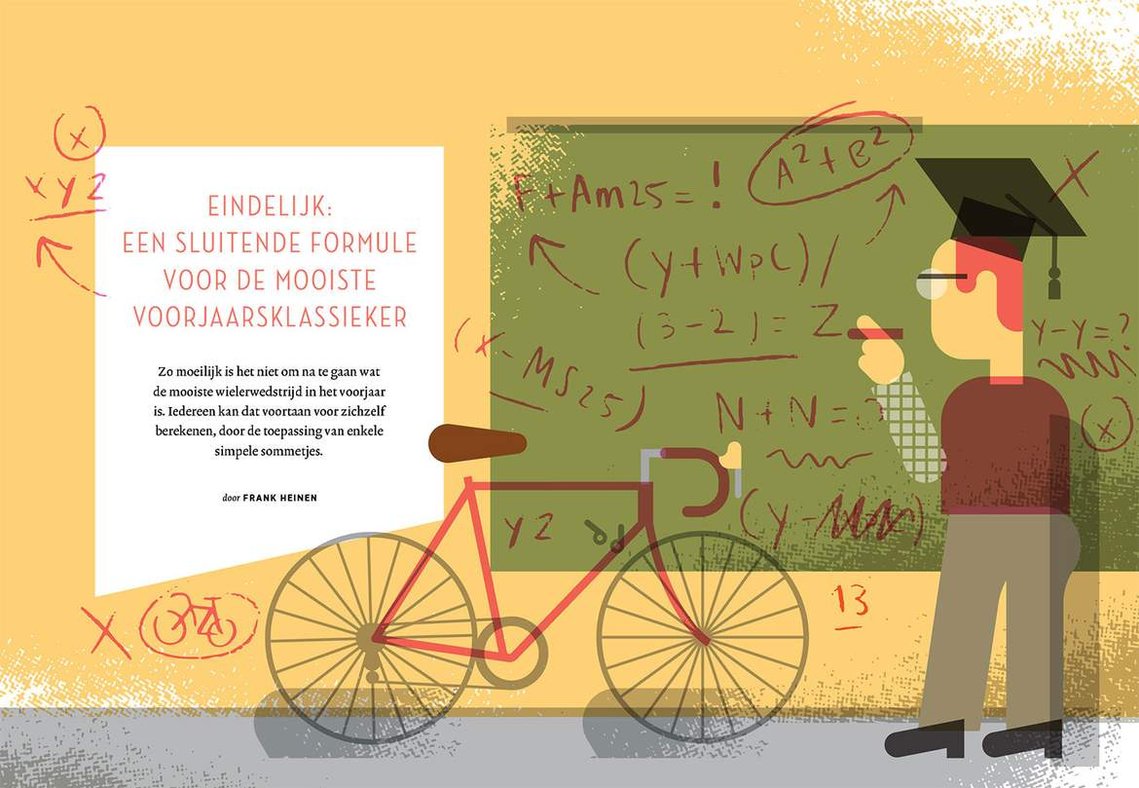 X
x y z
EINDELIJK:
EEN SLUITENDE FORMULE
VOOR DE MOOISTE
VOORJAARSKLASSIEKER
Zo moeilijk is het niet om na te gaan wat
de mooiste wielerwedstrijd in het voorjaar
is. Iedereen kan dat voortaan voor zichzelf
berekenen, door de toepassing van enkele
simpele sommetjes.
door FRANK HEINEN
X
A² + B²
F + Am25 = !
X
(y + WpC) /
(3 - 2) = Z
y - y = ?
(x - MS25)
N + N =
(x)
y 2
(y -
13